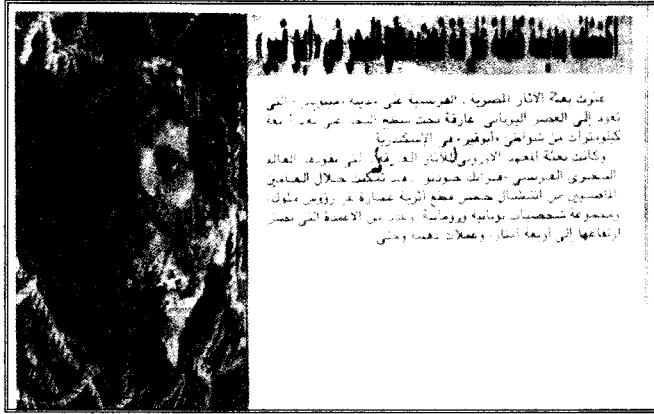 عثرت بعثة الآثار المصرية ـ الفرنسية على مدينة التي
تعود إلى العصر اليوناني غارقة تحت سطح البحر على بعد أربعة
كيلومترات من شواطئ «أبوقير» في الإسكندرية
وكانت بعثة المعهد الأوروبي للآثار الغارقة التي يقودها العالم
البحري الفرنسي «فرانك جوديو» قد تمكنت خلال العامين
الماضيين من انتشال خمس قطع أثرية عبارة عن رؤوس ملوك،
ومجموعة شخصيات يونانية ورومانية وعدد من الأعمدة التي يصل
ارتفاعها إلى أربعة أمتار، وعملات ذهبية وحلي